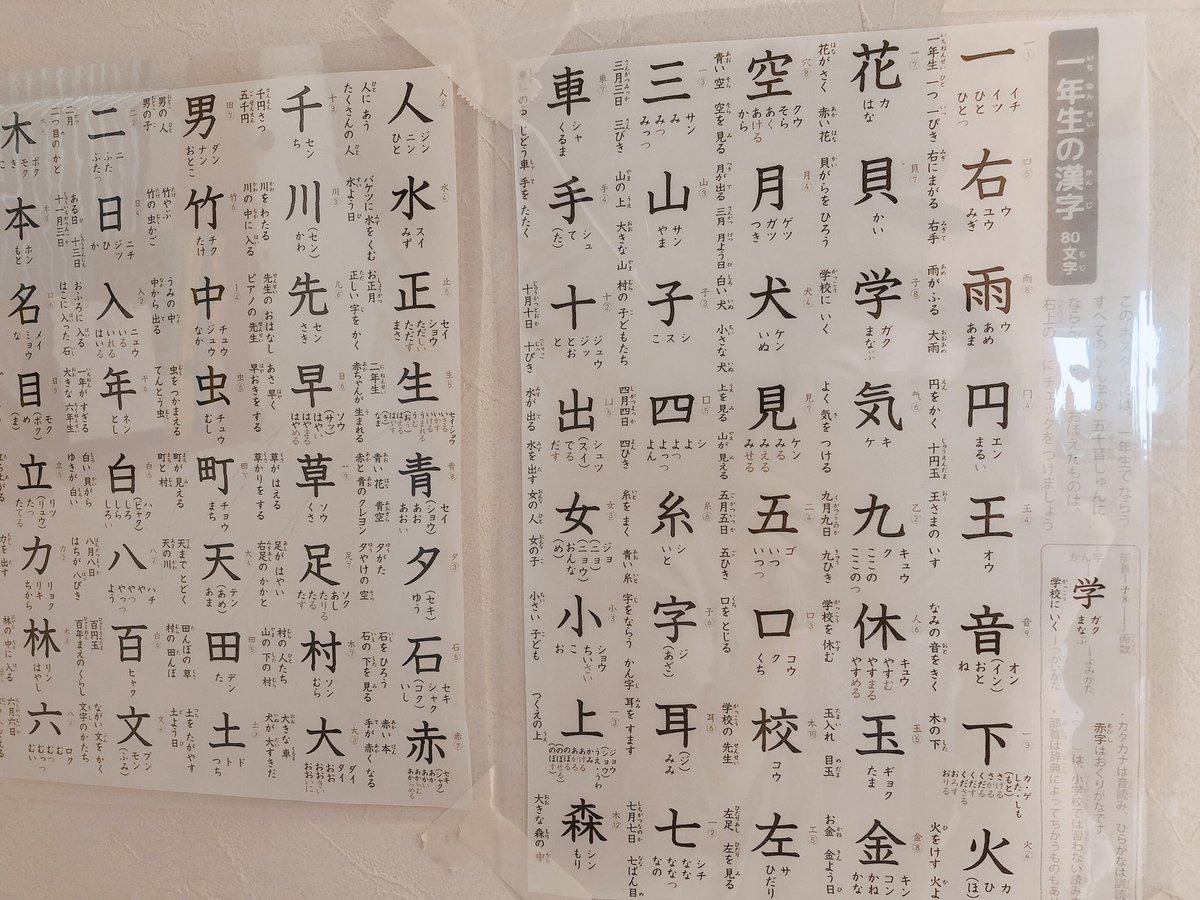 一年生の漢字 80文字
一①
一
イチ
イツ
ひと
ひとつ
一年生 一つ 一ぴき
口⑤
右
ウ
ユウ
みぎ
右にまがる 右手
雨⑧
雨
ウ
あめ
あま
雨がふる 大雨
冂④
円
エン
まるい
円をかく 十円玉
玉④
王
オウ
王さまの いす
音⑨
音
オン
(イン)
おと
ね
なみの 音をきく
一③
下
カ・ゲ
した・しも
(もと)
さげる
さがる
くだる
くだす
くださる
おろす
おりる
木の 下
火④
火
カ
ひ
(ほ)
火をけす
花
カ
はな
花がさく 赤い 花
貝⑦
貝
かい
貝がらを ひろう
子⑧
学
ガク
まなぶ
学校に いく
気⑥
気
キ
ケ
よく 気を つける
乙②
九
キュウ
ク
ここの
ここのつ
九月九日 九ひき
人⑥
休
キュウ
やすむ
やすまる
やすめる
学校を 休む
玉⑤
玉
ギョク
たま
玉入れ 目玉
金⑧
金
キン
コン
かね
かな
お金 金よう日
穴⑧
空
クウ
そら
あく
あける
から
青い 空 空を 見る
月④
月
ゲツ
ガツ
つき
月が出る 三月 月よう日
犬④
犬
ケン
いぬ
白い 犬 小さな 犬
見⑦
見
ケン
みる
みえる
みせる
上を見る 山が見える
二④
五
ゴ
いつ
いつつ
五月五日 五ひき
口③
口
コウ
ク
くち
口をとじる
木⑩
校
コウ
学校の 先生
工⑤
左
サ
ひだり
左足 左を見る
一③
三
サン
み
みつ
みっつ
三月三日 三びき
山③
山
サン
やま
山の 上 大きな 山
子③
子
シ
ス
こ
村の 子どもたち
口⑤
四
シ
よ
よつ
よっつ
よん
四月四日 四ひき
糸⑥
糸
シ
いと
糸を まく 青い 糸
子⑥
字
ジ
(あざ)
字をならう かん字
耳⑥
耳
(ジ)
みみ
耳を すます
一②
七
シチ
なな
ななつ
なの
七月七日 七ばん目
車⑦
車
シャ
くるま
手④
手
シュ
て
(た)
手を たたく
十②
十
ジュウ
ジッ
とお
と
十月十日 十ぴき
凵⑤
出
シュツ
(スイ)
でる
だす
水が出る 水を 出す
女③
女
ジョ
(ニョ)
(ニョウ)
おんな
(め)
女の人 女の子
小③
小
ショウ
ちいさい
こ
お
小さい 子ども
一③
上
ジョウ
つくえの 上
木⑫
森
シン
もり
大きな 森の 中
人②
人
ジン
ニン
ひと
人に あう
たくさんの 人
水④
水
スイ
みず
バケツに 水を くむ
水よう日
止⑤
正
セイ
ショウ
ただしい
ただす
まさ
お正月
正しい 字を かく
生⑤
生
セイ
ショウ
二年生
赤ちゃんが 生まれる
青⑧
青
セイ
(ショウ)
あお
あおい
青い 花 青空
赤と 青の クレヨン
夕③
夕
(セキ)
ゆう
夕がた
夕やけの 空
石⑤
石
セキ
シャク
(コク)
いし
石を ひろう
石の 下を 見る
赤⑦
赤
セキ
(シャク)
あか
あかい
あからむ
あからめる
赤い 本
手が 赤く なる
十③
千
セン
ち
千円さつ
五千円
川③
川
(セン)
かわ
川を わたる
川の 中に 入る
儿⑥
先
セン
さき
先生の おはなし
ピアノの 先生
日⑥
早
ソウ
(サッ)
はやい
はやまる
はやめる
あさ 早く
早おきを する
草
ソウ
くさ
草が はえる
草かりを する
足⑦
足
ソク
あし
たりる
たる
たす
足が はやい
右足の かかと
木⑦
村
ソン
むら
村の 人たち
山の 下の 村
大③
大
ダイ
タイ
おお
おおきい
おおいに
大きな 車
犬が 大すきだ
田⑦
男
ダン
ナン
おとこ
男の 人
男の 子
竹⑥
竹
チク
たけ
竹やぶ
竹の 虫かご
中
チュウ
ジュウ
なか
うみの 中
中から 出る
虫⑥
虫
チュウ
むし
虫を つかまえる
てんとう虫
田⑦
町
チョウ
まち
町が 見える
町と 村
大④
天
テン
(あめ)
あま
天まで とどく
天の川
田⑤
田
デン
た
田んぼの 草
村の 田んぼ
土③
土
ド
ト
つち
土を たがやす
土よう日
二②
二
ニ
ふた
ふたつ
二月
二つ目の かど
日④
日
ニチ
ジツ
ひ
か
ある日 十三日
十一月三日
入②
入
ニュウ
いる
いれる
はいる
おふろに 入る
はこに 入った 石
干⑥
年
ネン
とし
一年が すぎる
大きな 六年生
白⑤
白
ハク
(ビャク)
しろ
しら
しろい
白い 貝がら
ゆきが 白い
八②
八
ハチ
や
やつ
やっつ
よう
八月八日
はちが 八ぴき
白⑥
百
ヒャク
百円玉
百年まえの くらし
文④
文
ブン
モン
(ふみ)
ながい 文を かく
文字の かたち
木
ボク
モク
き
本
ホン
もと
口⑥
名
メイ
ミョウ
な
目⑤
目
モク
(ボク)
め
(ま)
立⑤
立
リツ
(リュウ)
たつ
たてる
力②
力
リョク
リキ
ちから
木⑧
林
リン
はやし
林の 中に 入る
六
ロク
む
むつ
むっつ
むい
六月六日
学
ガク
まなぶ
学校にいく
よみかた
つかいかた
赤字はおくりがなです